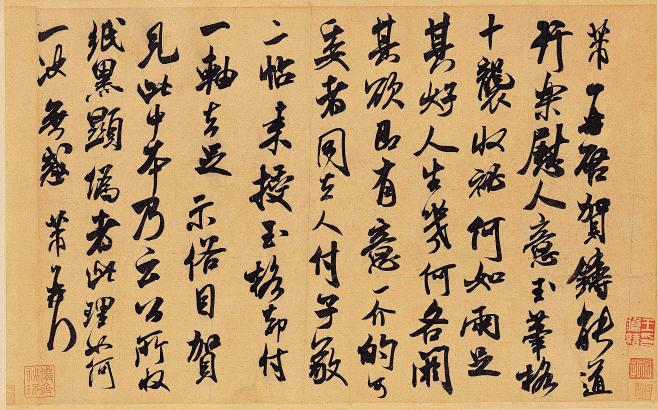 芾再啟賀鑄能道
行樂慰人意玉筆格
十襲收秘何如兩足
其好人生幾何各闕
其欲即有意一介的可
委者同去人付子敬
二帖來授玉格却付
一軸去足示俗目賀
見此中本乃云公所收
紙黑顯偽者此理如何
一決無惑芾再行